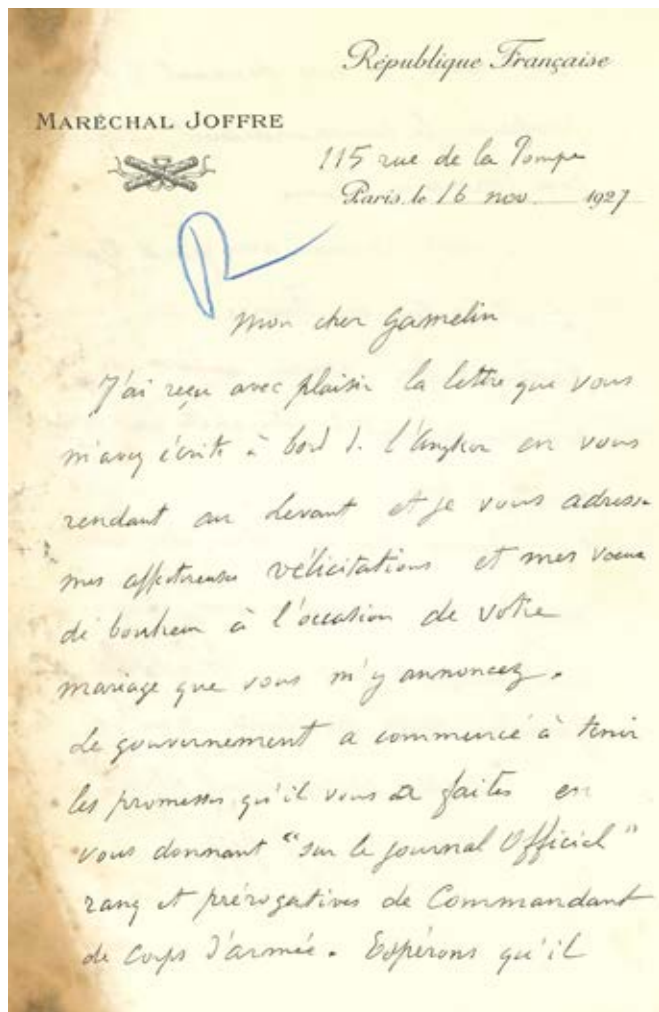 République Française
MARÉCHAL JOFFRE
115 rue de la Pompe
Paris, le 16 nov. 1927
Mon cher Gamelin
J'ai reçu avec plaisir la lettre que vous
m'avez écrite à bord de l'Angkor en vous
rendant au Levant et je vous adresse
mes affectueuses vélicitations et mes vœux
de bonheur à l'occasion de votre
mariage que vous m'y annoncez.
Le gouvernement a commencé à tenir
les promesses qu'il vous a faites en
vous donnant "sur le journal Officiel"
rang et prérogatives de Commandant
de Corps d'armée. Espérons qu'il